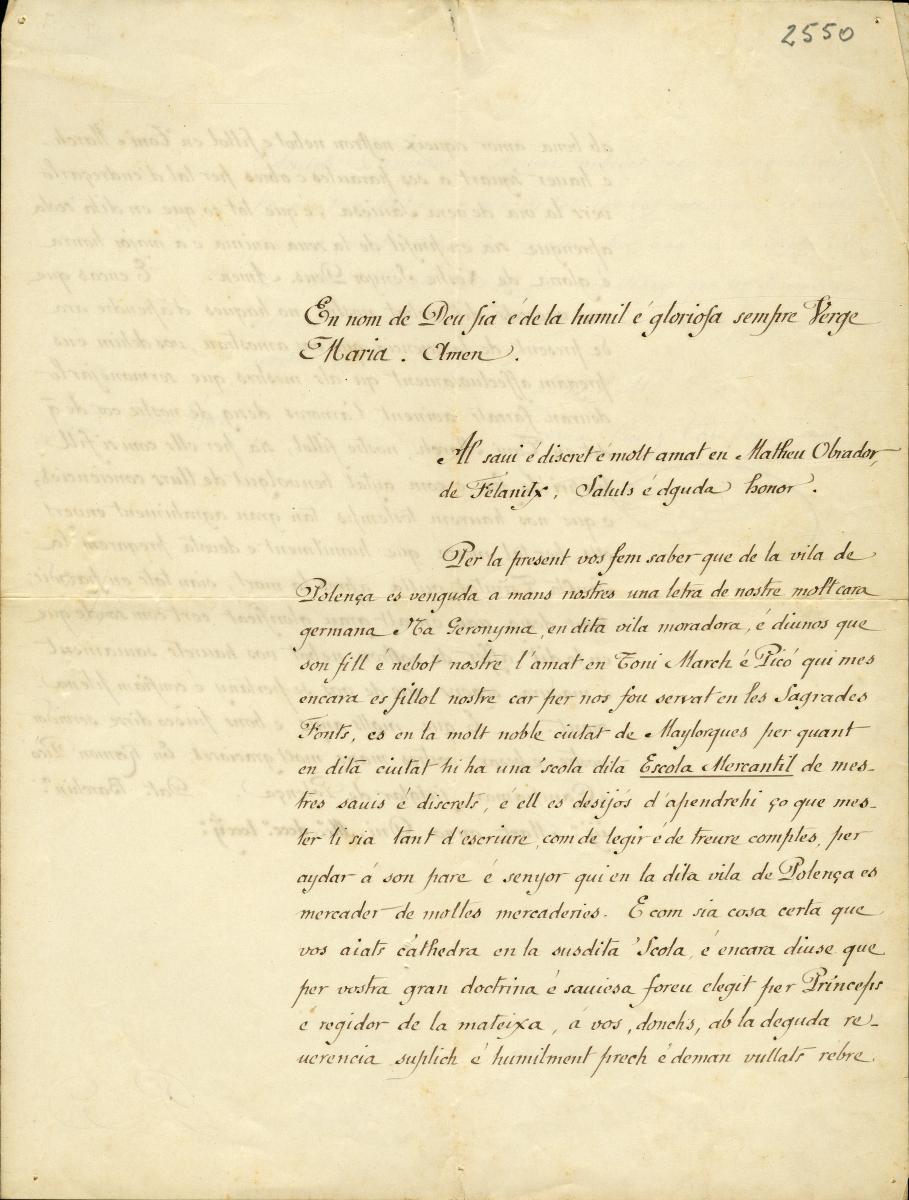 2550
En nom de Deu sia é de la humil é gloriosa sempre Verge
Maria. Amen.
Al savi é discret é molt amat en Matheu Obrador,
de Felanitx, Saluts é dguda honor.
Per la present vos fem saber que de la vila de
Polença es venguda a mans nostres una letra de nostre molt cara
germana Na Geronyma, en dita vila moradora, é diunos que
son fill é nebot nostre l'amat en Toni March é Picó qui mes
encara es fillol nostre car per nos fou servat en les Sagrades
Fonts, es en la molt noble ciutat de Maylorques per quant
en dita ciutat hi ha una 'scola dita Escola Mercantil de mes-
tres savis é discrets, é ell es desijós d'apendrehi ço que mes-
ter li sia tant d'escriure, com de legir é de treure comptes, per
aydar á son pare é senyor qui en la dita vila de Polença es
mercader de moltes mercaderies. E com sia cosa certa que
vos aiats càthedra en la susdita 'Scola, é encara diuse que
per vostra gran doctrina é saviesa foreu elegit per Princeps
e regidor de la mateixa, á vos, donchs, ab la deguda re-
verencia suplich é humilment prech é deman vullats rebre